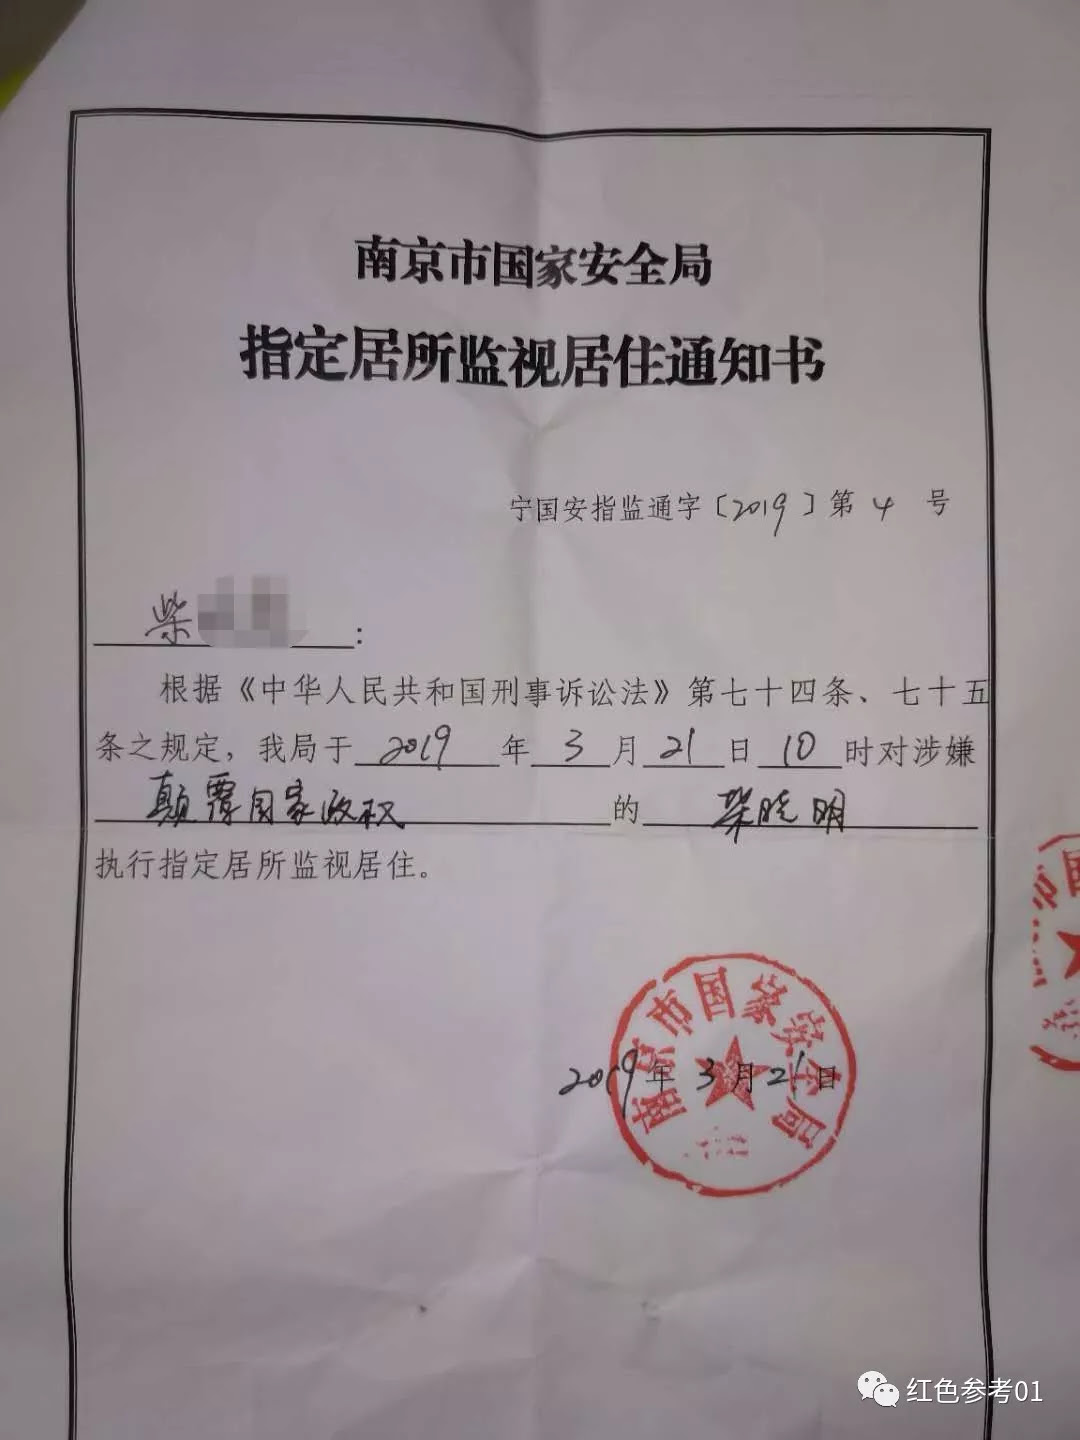 南京市国家安全局
指定居所监视居住通知书
宁国安指监通字〔2019〕第 4 号
柴 :
根据《中华人民共和国刑事诉讼法》第七十四条、七十五
条之规定，我局于 2019 年 3 月 21 日 10 时对涉嫌
颠覆国家政权 的 柴晓明
执行指定居所监视居住。
南京市国家安全局
2019年 3 月 21 日
市国
红色参考01